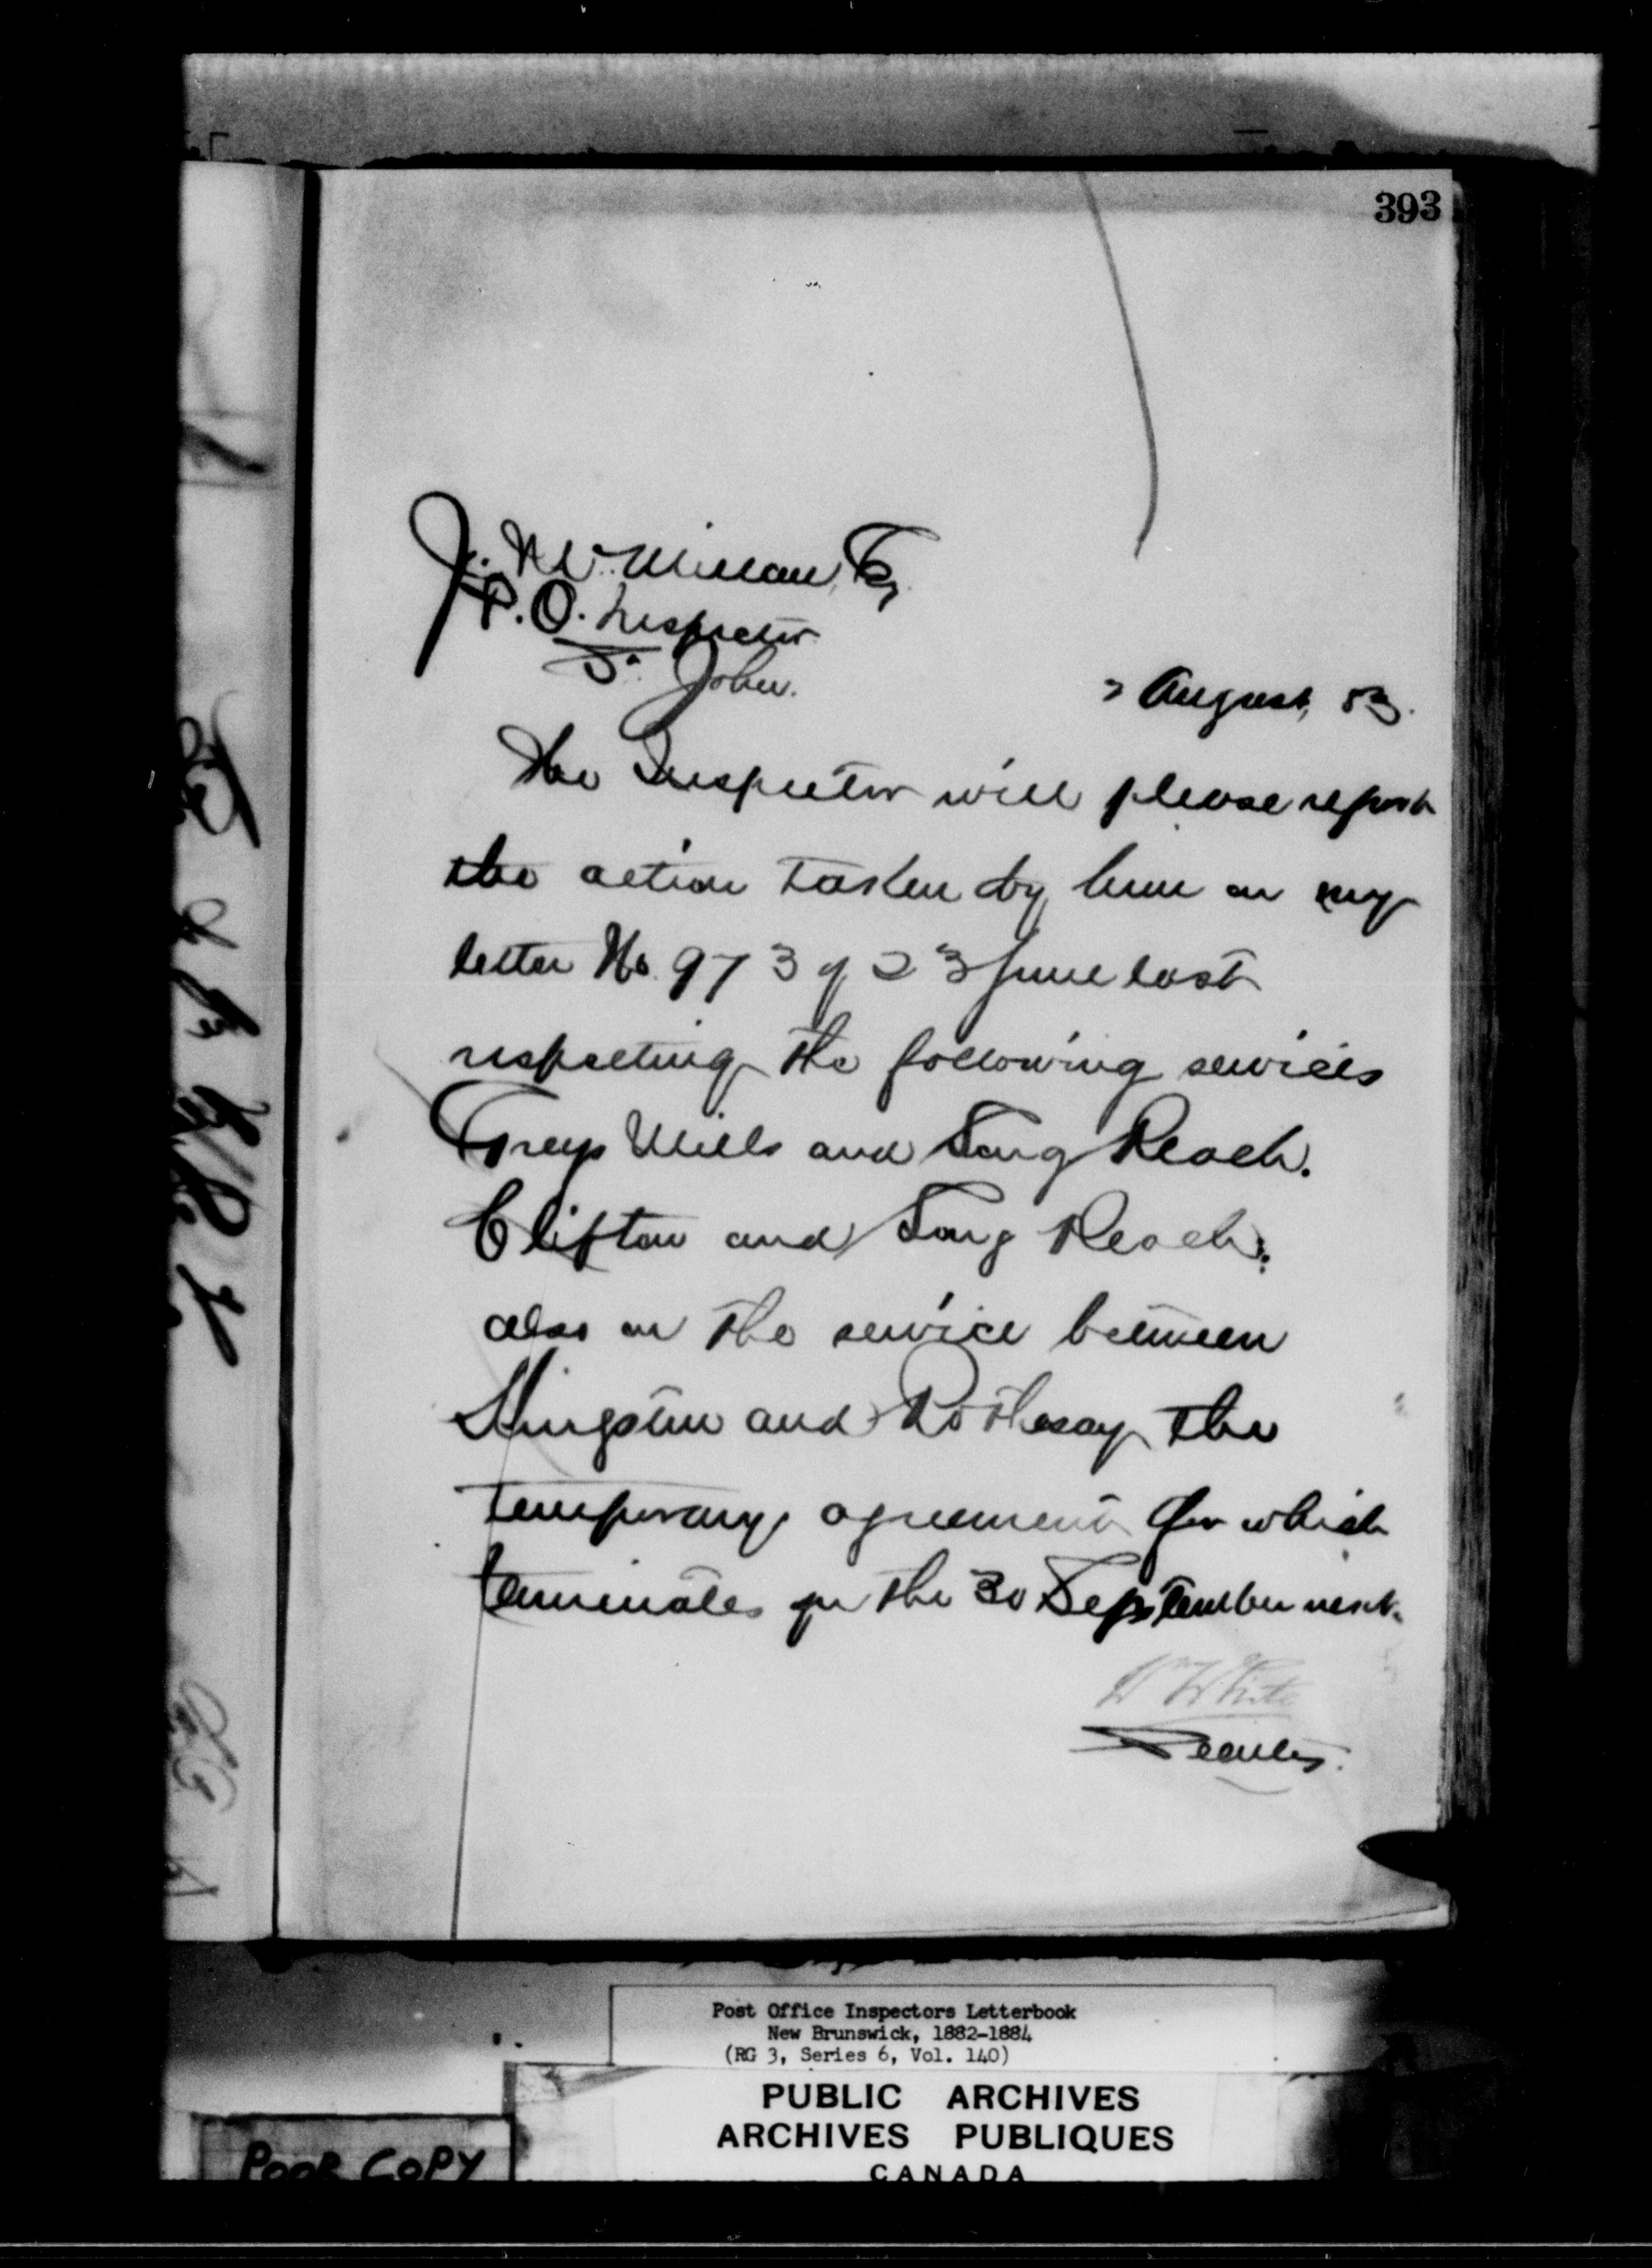 393
J. McMillan, Esq.
P.O. Inspector
St. John.
2 August, 83.
The Inspector will please report
the action taken by him on my
letter No. 973 of 23 June last
respecting the following services
Grays Mills and Long Reach.
Clifton and Long Reach.
also on the service between
Kingston and Rothesay the
temporary agreement for which
terminates on the 30 September next.
Wm White
Secretary.
Post Office Inspectors Letterbook
New Brunswick, 1882-1884
(RG 3, Series 6, Vol. 140)
PUBLIC ARCHIVES
ARCHIVES PUBLIQUES
CANADA
POOR COPY